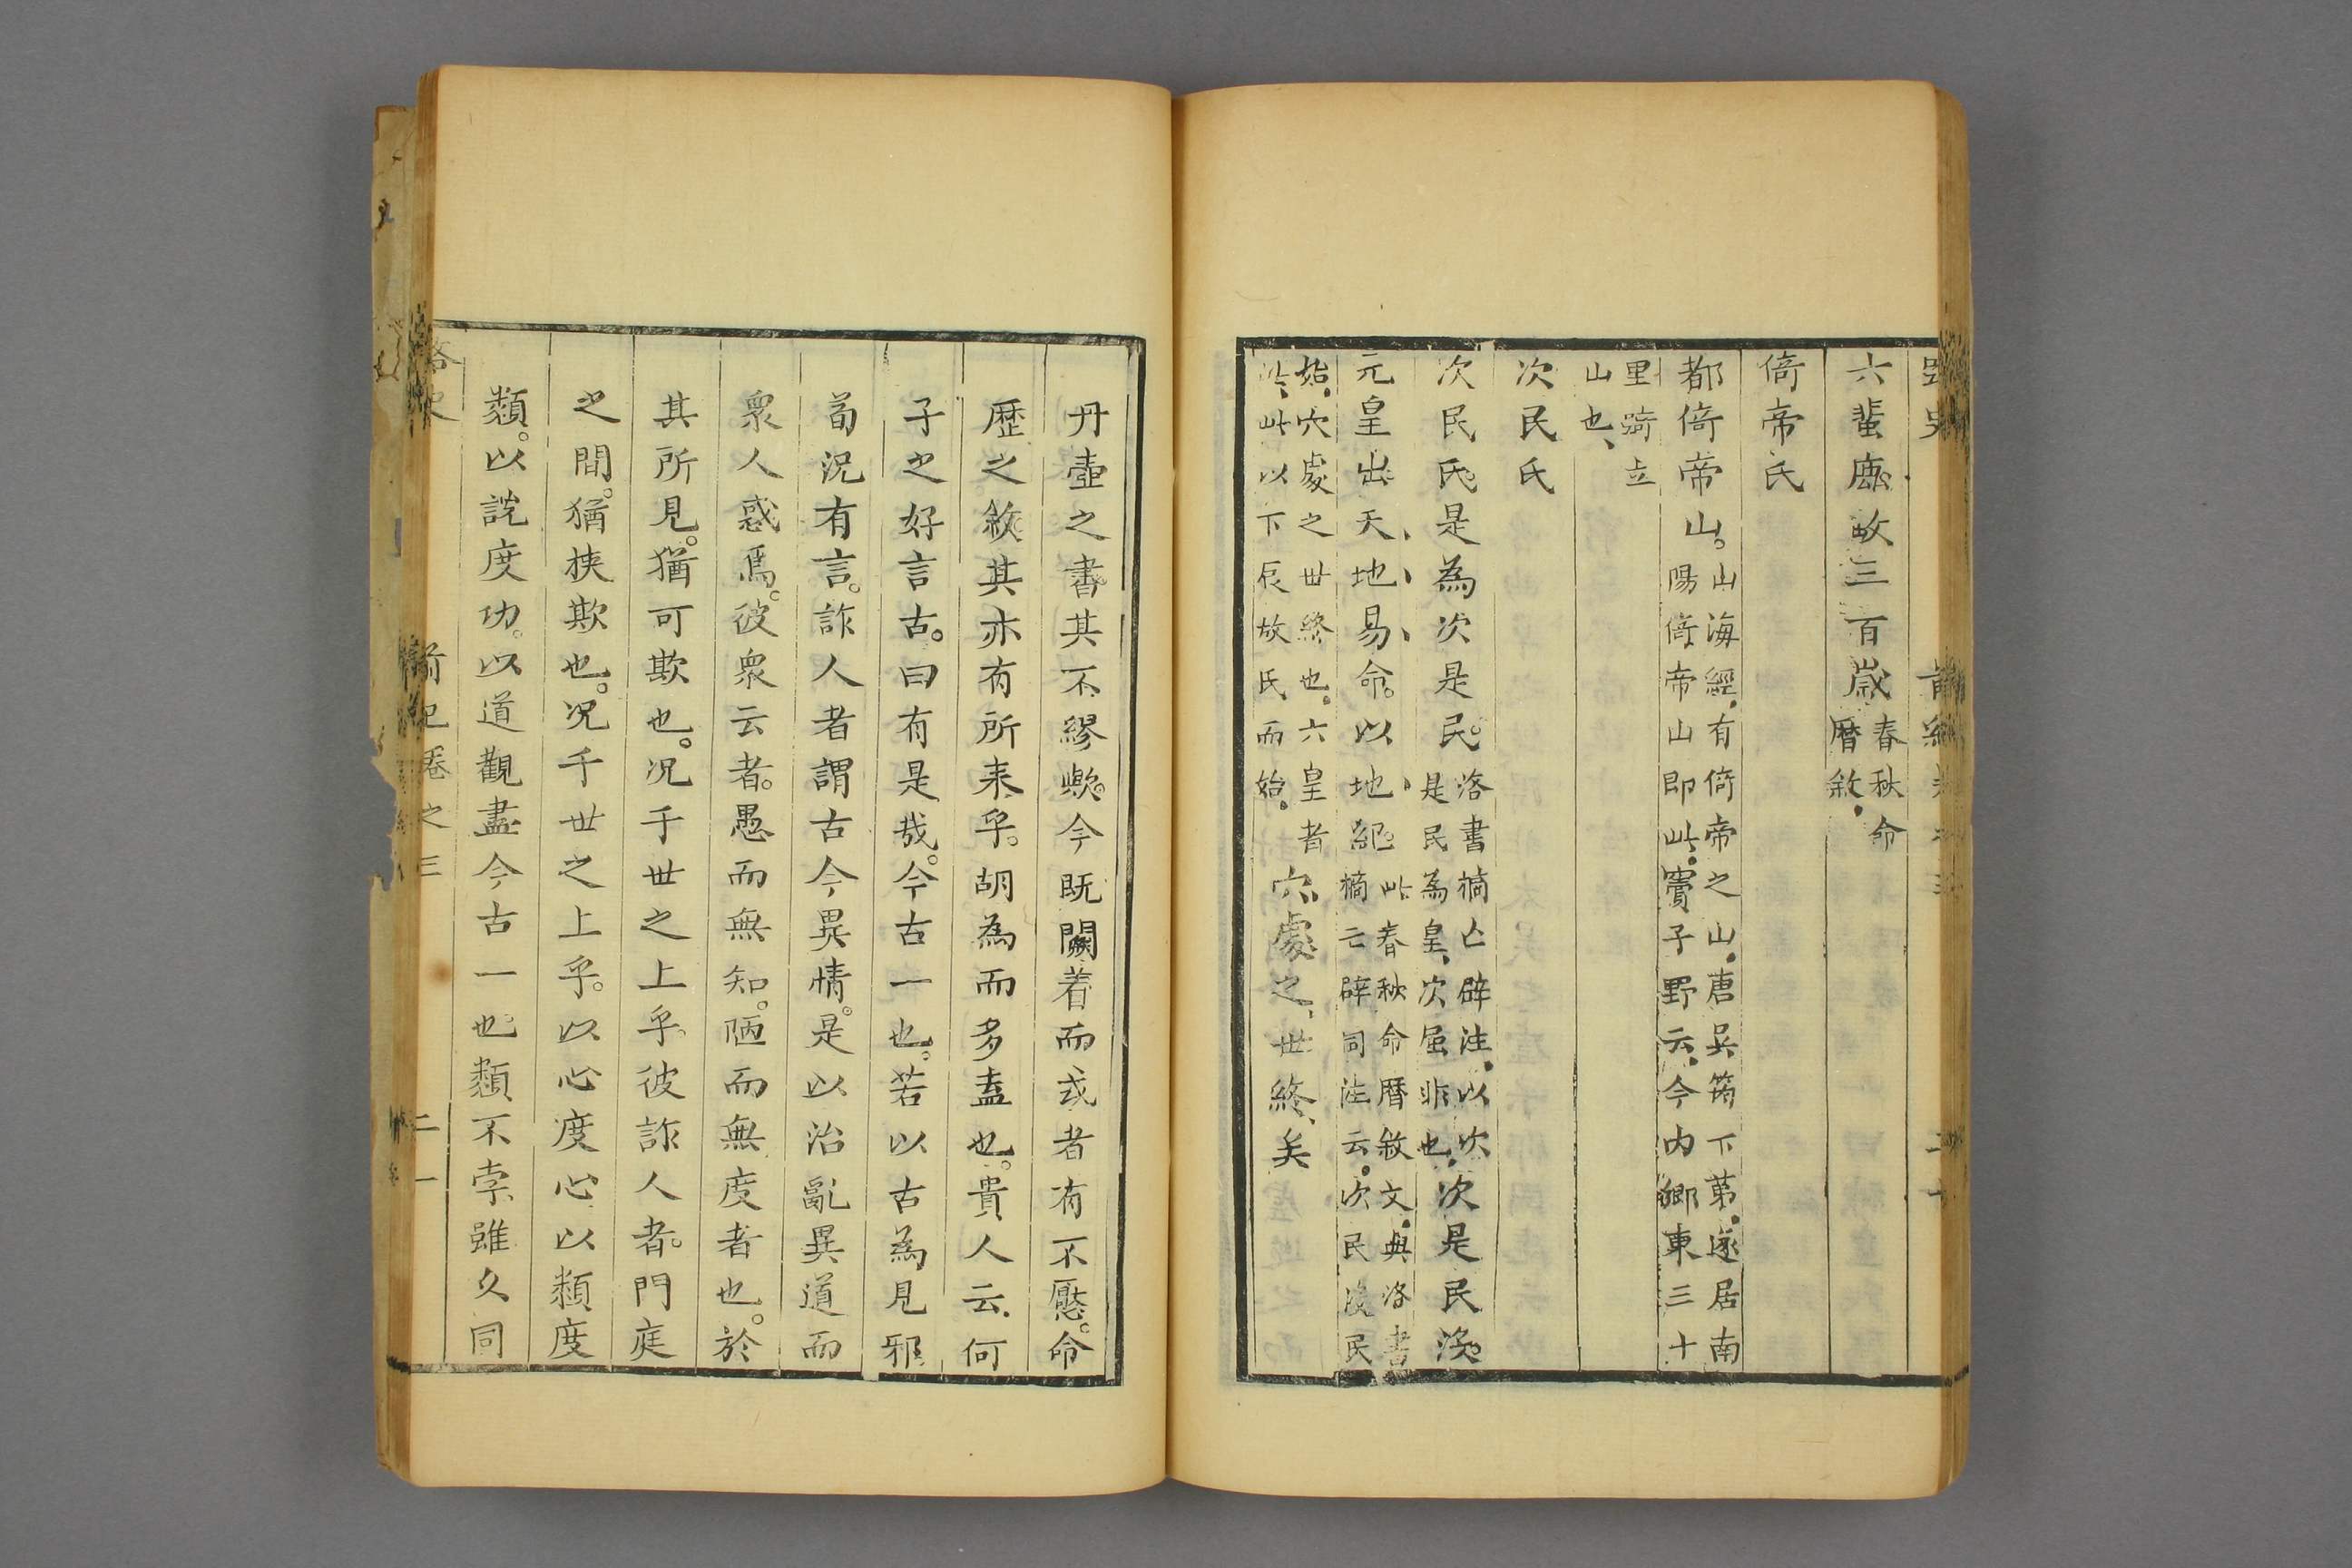 六蜚鹿。故三百歲春秋命
曆敘。
倚帝氏
都倚帝山。山海經。有倚帝之山。唐吳筠下第。遂居南
陽倚帝山即此。竇子野云。今内鄉東三十
里踦立
山也、
次民氏
次民氏。是為次是民。洛書摘亡辟注。以次
是民為皇、次屈非也。次是民沒。
元皇出、天、地、易、命。以地、紀。此春秋命曆敘文。與洛書
摘亡辟同注云。次民沒民
始、穴處之世終也。六皇者
此以下辰放氏而始。穴處之、世終、矣
丹壺之書。其不繆歟。今旣闕着而或者有不懕。命
歴之敘。其亦有所来乎。胡為而多盍也。貴人云、何
子之好言古。曰有是哉。今古一也。若以古為見邪
荀況有言。詐人者謂古今異情。是以治亂異道而
衆人惑焉。彼衆云者。愚而無知。陋而無度者也。於
其所見。猶可欺也。况千世之上乎。彼詐人者。門庭
之間。猶挾欺也。况千世之上乎。以心度心以類度
類。以說度功。以道觀盡今古一也。類不孛雖久同
路史 前紀卷之三 二一